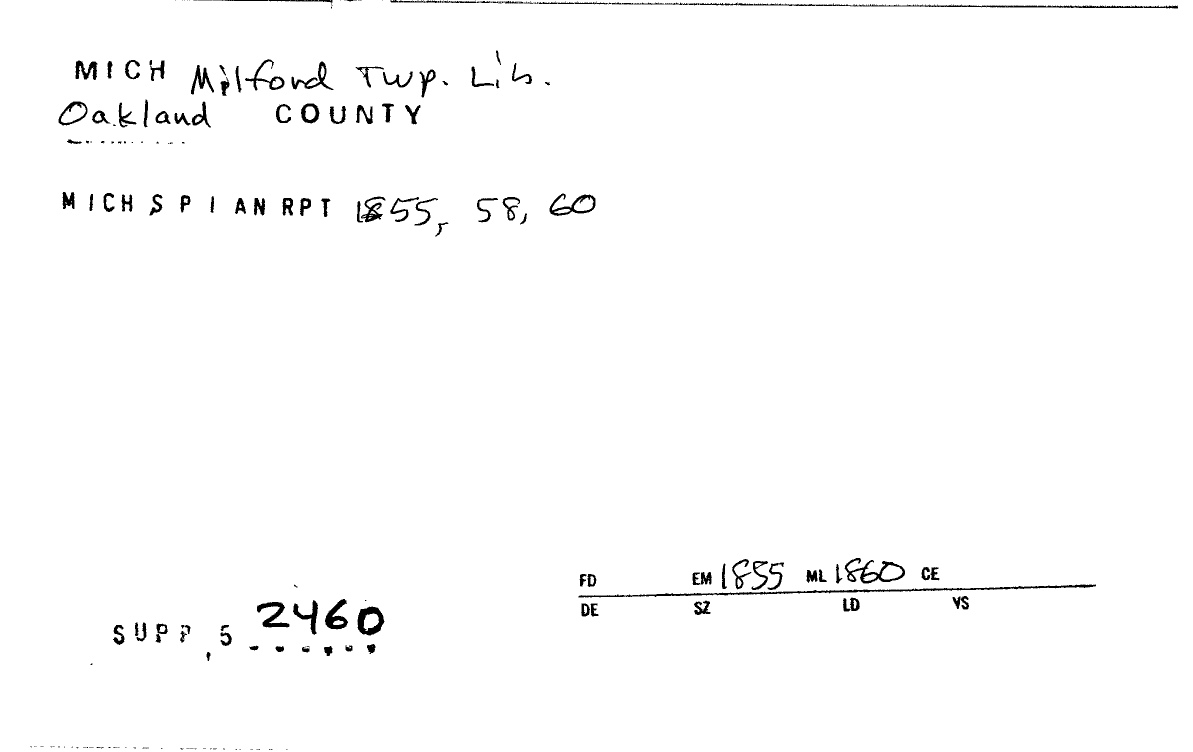 MICH Milford Twp. Lib.
Oakland COUNTY
MICH SPI AN RPT 1855, 58, 60
FD EM 1855 ML 1860 CE
DE SZ LD VS
SUPP, 5 2460